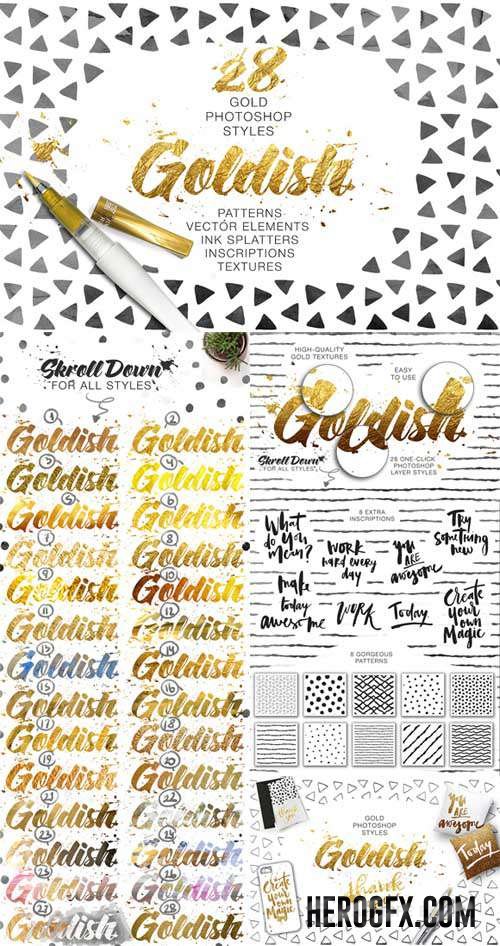 28
GOLD
PHOTOSHOP
STYLES
Goldish
PATTERNS
VECTOR ELEMENTS
INK SPLATTERS
INSCRIPTIONS
TEXTURES
Skroll Down
FOR ALL STYLES
1
Goldish
2
Goldish
3
Goldish
4
Goldish
5
Goldish
6
Goldish
7
Goldish
8
Goldish
9
Goldish
10
Goldish
11
Goldish
12
Goldish
13
Goldish
14
Goldish
15
Goldish
16
Goldish
17
Goldish
18
Goldish
19
Goldish
20
Goldish
21
Goldish
22
Goldish
23
Goldish
24
Goldish
25
Goldish
26
Goldish
27
Goldish
28
Goldish
HIGH-QUALITY
GOLD TEXTURES
EASY
TO USE
Goldish
Skroll Down
FOR ALL STYLES
28 ONE-CLICK
PHOTOSHOP
LAYER STYLES
8 EXTRA
INSCRIPTIONS
What
do you
mean?
Work
hard every
day
you
ARE
awesome
Try
something
new
make
today
awesome
Work
Today
Create
your
own
Magic
8 GORGEOUS
PATTERNS
GOLD
PHOTOSHOP
STYLES
Goldish
thank
you
ARE
awesome
Today
Create
your
own
Magic
HEROGFX.COM